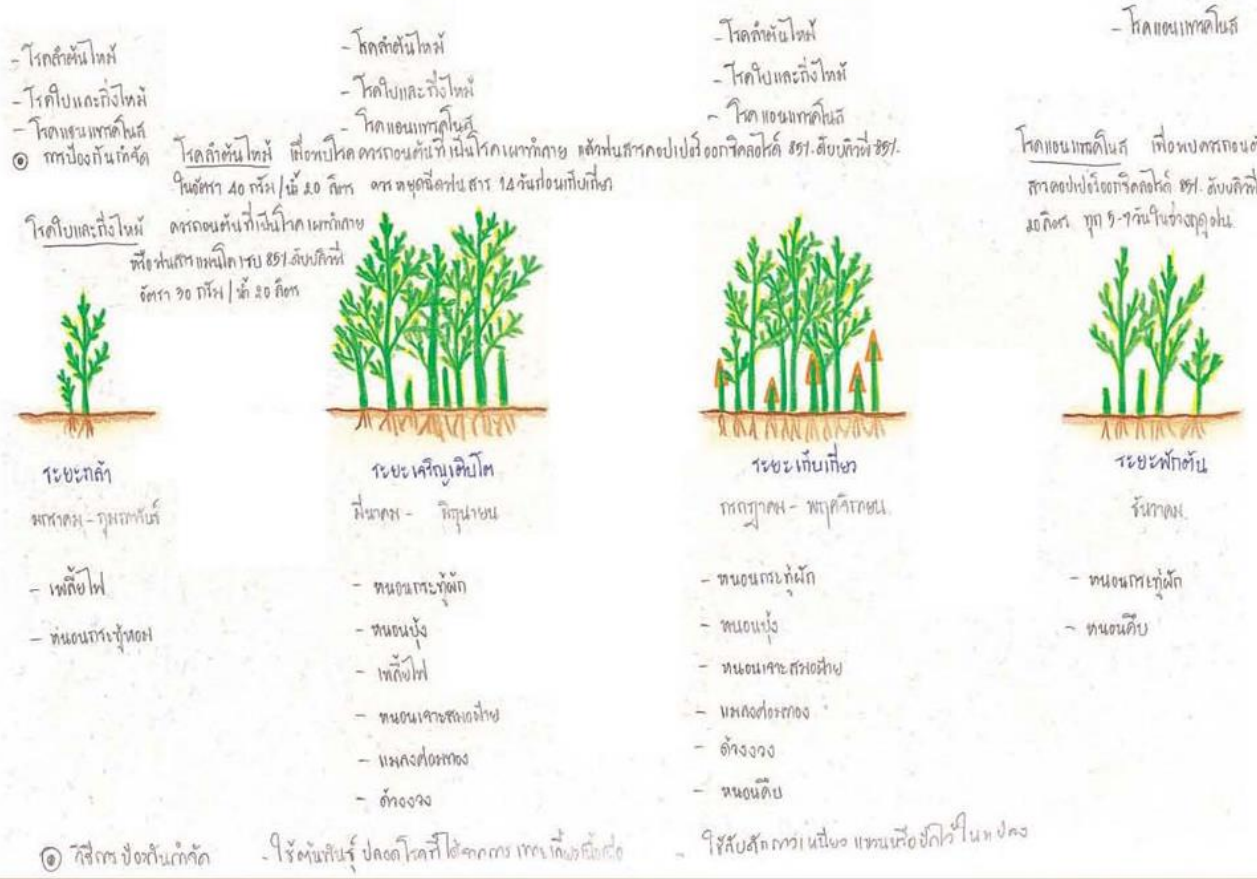 - โรคลำต้นไหม้
- โรคใบและกิ่งไหม้
- โรคแอนแทรคโนส
- โรคลำต้นไหม้
- โรคใบและกิ่งไหม้
- โรคแอนแทรคโนส
- โรคลำต้นไหม้
- โรคใบและกิ่งไหม้
- โรคแอนแทรคโนส
- โรคแอนแทรคโนส
การป้องกันกำจัด
โรคลำต้นไหม้ เมื่อพบโรคควรถอนต้นที่เป็นโรคเผาทำลาย แล้วพ่นสารคอปเปอร์ออกซิคลอไรด์ 85% ดับบลิวพี 85%
ในอัตรา 40 กรัม/น้ำ 20 ลิตร ควรหยุดฉีดพ่นสาร 14 วันก่อนเก็บเกี่ยว
โรคใบและกิ่งไหม้ ควรถอนต้นที่เป็นโรคเผาทำลาย
หรือพ่นสารแมนโคเซบ 85% ดับบลิวพี
อัตรา 30 กรัม/น้ำ 20 ลิตร
โรคแอนแทรคโนส เมื่อพบควรถอนต้
สารคอปเปอร์ออกซิคลอไรด์ 85% ดับบลิวพี
20 ลิตร ทุก 5-7 วันในช่วงฤดูฝน
ระยะกล้า
มกราคม - กุมภาพันธ์
- เพลี้ยไฟ
- หนอนกระทู้หอม
ระยะเจริญเติบโต
มีนาคม - มิถุนายน
- หนอนกระทู้ผัก
- หนอนบุ้ง
- เพลี้ยไฟ
- หนอนเจาะสมอฝ้าย
- แมลงค่อมทอง
- ด้วงงวง
ระยะเก็บเกี่ยว
กรกฎาคม - พฤศจิกายน
- หนอนกระทู้ผัก
- หนอนบุ้ง
- หนอนเจาะสมอฝ้าย
- แมลงค่อมทอง
- ด้วงงวง
- หนอนคืบ
ระยะพักต้น
ธันวาคม
- หนอนกระทู้ผัก
- หนอนคืบ
วิธีการป้องกันกำจัด - ใช้ต้นพันธุ์ปลอดโรคที่ได้จากการเพาะเลี้ยงเนื้อเยื่อ - ใช้กับดักกาวเหนียว แขวนหรือปักไว้ในแปลง